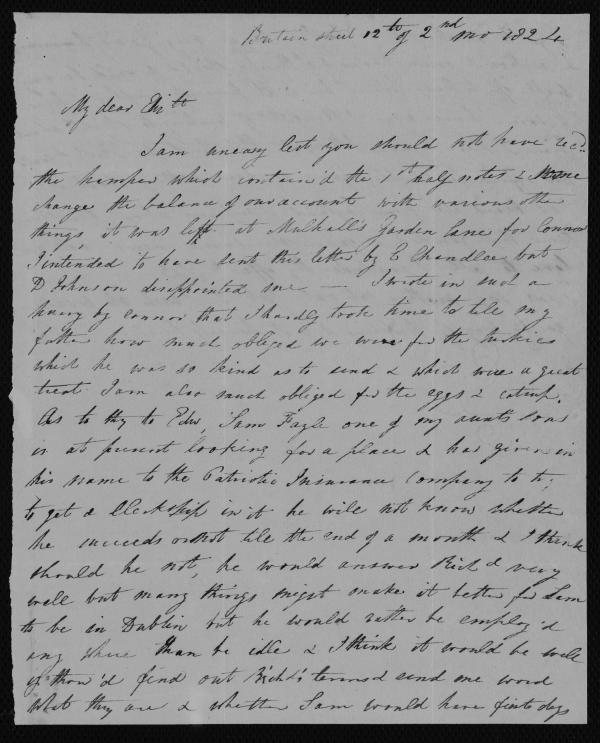 Britain street 12th of 2nd mo 1824
My dear Elizth
I am uneasy lest you should not have recd.
the hamper which contain'd the 1st half notes &
change the balance of our account with various other
things, it was left at Mulhall's Garden Lane for Connor
I intended to have sent this letter by E Chandlee but
D Johnson disappointed me — I wrote in such a
hurry by Connor that I hardly took time to tell my
father how much obliged we were for the turkies
which he was so kind as to send & which were a great
treat I am also much obliged for the eggs & catsup.
As to thy to Edw, Sam Fayle one of my aunts sons
is at present looking for a place & has given in
his name to the Patriotic Insurance Company to try
to get a Clerkship in it he will not know whether
he succeeds or not till the end of a month & I think
should he not, he would answer Richd very
well but many things might make it better for Sam
to be in Dublin but he would rather be employ'd
any where than be idle & I think it would be well
if thou'd find out Richd's terms & send me word
what they are & whether Sam would have first days